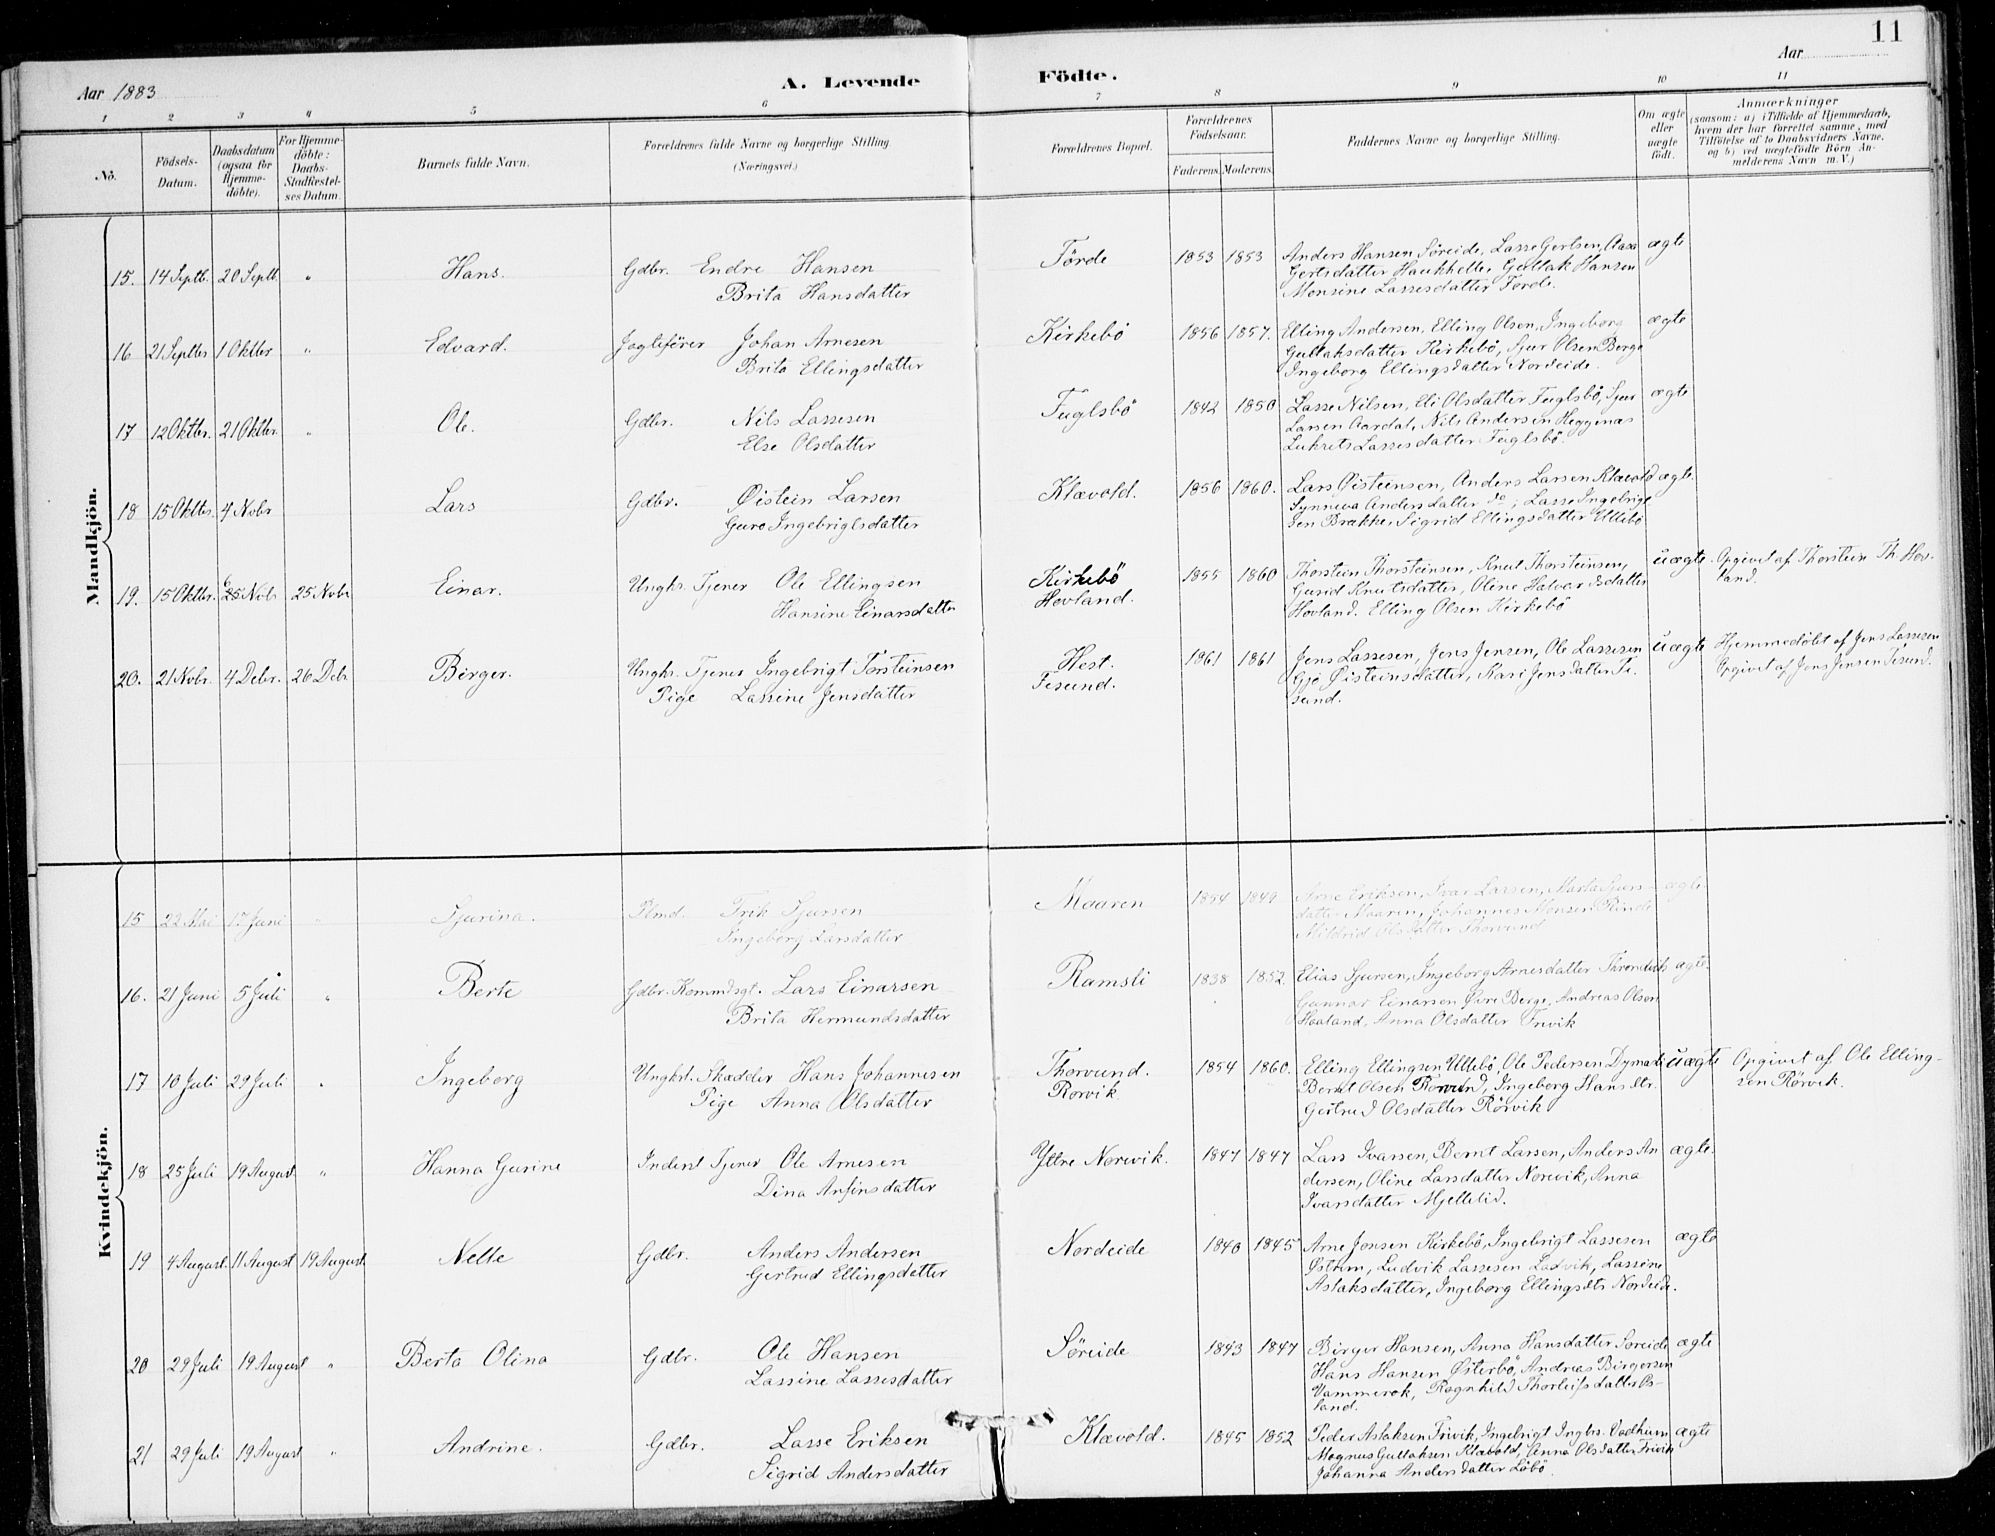 11
Aar 1883
A. Levende Födte.
Aar
1 2 3 4 5 6 7 8 9 10 11
No.
Födsels-Datum.
Daabsdatum (ogsaa for Hjemmedöbte).
For Hjemmedöbte: Daabs-Stadfæstelses Datum.
Barnets fulde Navn.
Forældrenes fulde Navne og borgerlige Stilling. (Næringsvei.)
Forældrenes Bopæl.
Forældrenes Födselsaar.
Faderens. Moderens.
Faddernes Navne og borgerlige Stilling.
Om ægte eller uægte födt.
Anmærkninger
(saasom: a) i Tilfælde af Hjemmedaab, hvem der har forrettet samme, med Tilföielse af to Daabsvidners Navne, og b) ved uægtefödte Börn Anmelderens Navn m. V.)
Mandkjön.
15. 14 Septb. 20 Septb. " Hans. Gdbr. Endre Hansen Förde 1853 1853 Anders Hansen Söreide, Lasse Gertsen, Aasa ægte
Brita Hansdatter Gertsdatter Haukhelle, Guttak Hansen
Monsine Lassesdatter Förde.
16 21 Septbr 1 Oktbr " Edvard. Johan Arnesen Kirkebö 1856 1857. Elling Andersen, Elling Olsen, Ingeborg ægte
Brita Ellingsdatter Guttaksdatter Kirkebö, Sjur Olsen Berge
Ingeborg Ellingsdatter Nordeide.
17 12 Oktbr. 21 Oktbr. " Ole. Gdbr. Nils Lassesen Fuglsbö 1842 1850 Lasse Nilsen, Eli Olsdatter Fuglsbö, Sjur ægte
Else Olsdatter Larsen Aardal, Nils Andersen Heggenæs
Lukrets Lassesdatter Fuglsbö.
18 15 Oktbr. 4 Nobr Lars Gdbr. Øistein Larsen Klævold. 1856 1860. Lars Øisteinsen, Anders Larsen Klævold ægte.
Guro Ingebrigtsdatter Synneva Andersdatter do; Lasse Ingebrigt
sen Brække, Sigrid Ellingsdatter Ullebö
19. 15 Oktbr. 25 Nobr 25 Nobr Einar. Ungkr. Tjener Ole Ellingsen Kirkebö 1855 1860 Thorstein Thorsteinsen, Knut Thorsteinsen, uægte. Opgivet af Thorstein Th. Hov-
Hansine Einarsdatter Hovland. Gurid Knutsdatter, Oline Halvardsdatter land.
Hovland. Elling Olsen Kirkebö
20. 21 Nobr. 4 Debr. 26 Debr Birger. Ungkr. Tjener Ingebrigt Torsteinsen Hest. 1861 1861 Jens Lassesen, Jens Jensen, Ole Lassesen uægte Hjemmedöbt af Jens Lassesen
Pige Lassine Jensdatter Tesund. Gjö Øisteinsdatter, Kari Jensdatter Te- Opgivet af Jens Jensen Tesund.
sund.
Kvindekjön.
15 22 Mai 17 Juni " Sjurina. Plmd. Erik Sjursen Maaren 1854 1849 Arne Eriksen, Ivar Larsen, Marta Sjurs- ægte
Ingeborg Larsdatter datter Maaren, Johannes Monsen Rinde
Mildrid Olsdatter Thorvund
16. 21 Juni 5 Juli " Berte Gdbr. Kommdsgt. Lars Einarsen Ramsli 1838 1852. Elias Sjursen, Ingeborg Arnesdatter ægte.
Brita Hermundsdatter Gunnar Einarsen Øvre Berge, Andreas Olsen
Haaland, Anna Olsdatter Trivik
17 10 Juli 29 Juli " Ingeborg Ungkrl. Skædder Hans Johannesen Thorvund. 1854 1860. Elling Ellingsen Ullebö, Ole Pedersen uægte Opgivet af Ole Elling-
Pige Anna Olsdatter Rorvik Bernt Olsen Ingeborg Hansdtr. sen Rörvik.
Gertrud Olsdatter Rörvik
18 25 Juli 19 August " Hanna Gurine Inderst Tjener Ole Arnesen Yttre Norevik. 1847 1847 Lars Ivarsen, Bernt Larsen, Anders An ægte.
Dina Anfinsdatter dersen, Oline Larsdatter Norevik, Anna
Ivarsdatter Mjelletid.
19 4 August. 11 August 19 August. Nelle Gdbr. Anders Andersen Nordeide 1840 1845 Arne Jonsen Kirkebö, Ingebrigt Lassesen ægte
Gertrud Ellingsdatter Østrem, Ludvik Lassesen Ladvik, Lassine
Aslaksdatter, Ingeborg Ellingsdtr Nordeide.
20 29 Juli 19 August " Berta Olina Gdbr. Ole Hansen Söreide 1843 1847 Birger Hansen, Anna Hansdatter Söreide ægte
Lassine Lassesdatter Hans Hansen Österbö, Andreas Birgersen
Vammerok, Ragnhild Thorleifsdatter Øs-
land.
21 29 Juli 19 August " Andrine. Gdbr. Lasse Eriksen Klævold. 1845 1852 Peder Aslaksen Trivik, Ingebrigt Ingbr. Vadheim ægte
Sigrid Andersdatter Magnus Guttaksen Klævold, Anna Olsdatter Trivik
Johanna Andersdatter Löbö.